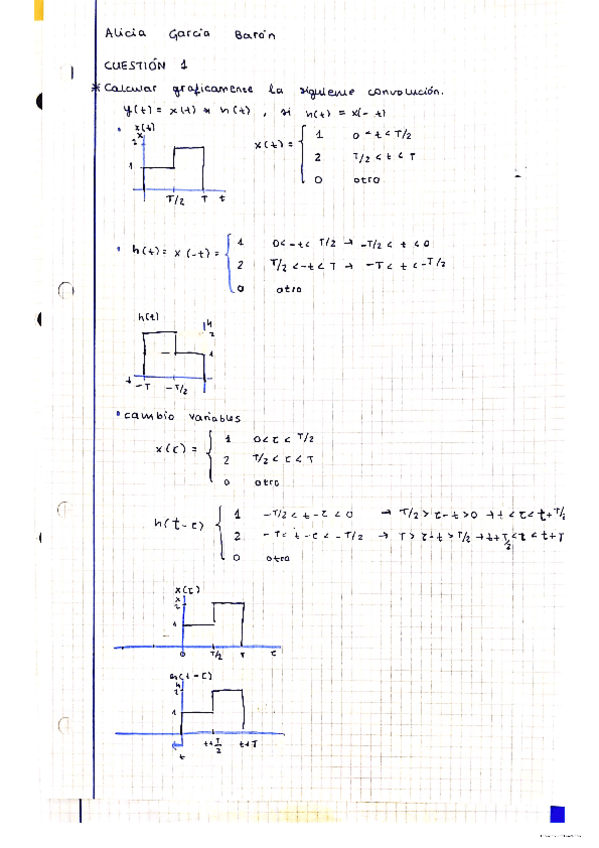 Alicia García Barón
CUESTIÓN 1
* Calcular graficamente la siguiente convolución.
y(t) = x(t) * h(t) , si h(t) = x(-t)
x(t)
x
2
1
T/2 T t
x(t) = { 1 0 < t < T/2
2 T/2 < t < T
0 otro
• h(t) = x(-t) = { 1 0 < -t < T/2 → -T/2 < t < 0
2 T/2 < -t < T → -T < t < -T/2
0 otro
h(t)
h
2
1
-T -T/2
• cambio variables
x(τ) = { 1 0 < τ < T/2
2 T/2 < τ < T
0 otro
h(t-τ) { 1 -T/2 < t-τ < 0 → T/2 > τ-t > 0 → t < τ < t+T/2
2 -T < t-τ < -T/2 → T > τ-t > T/2 → t+T/2 < τ < t+T
0 otro
x(τ)
x
2
1
0 T/2 T τ
h(t-τ)
h
2
1
t t+T/2 t+T